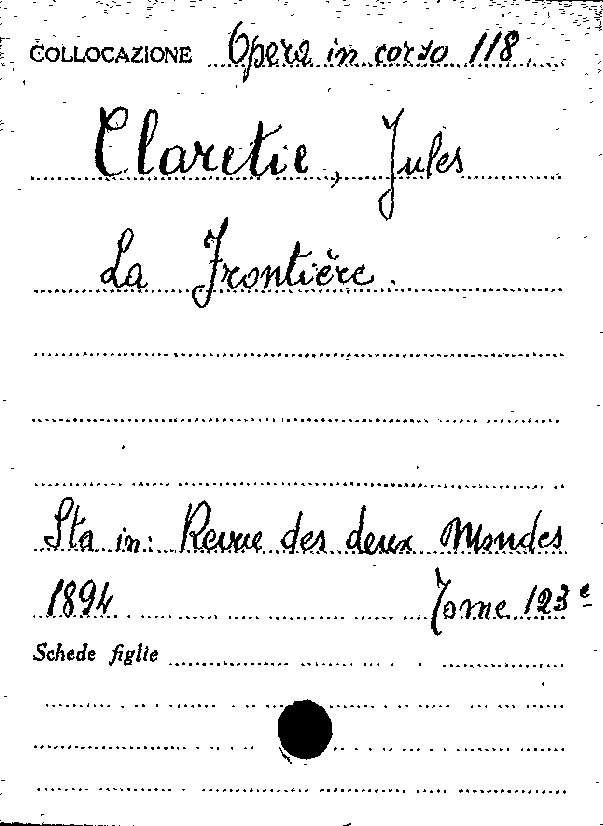 COLLOCAZIONE Opera in corso 118
Claretie, Jules
La Frontière.
Sta in: Revue des deux Mondes
1894 Tome 123e
Schede figlie